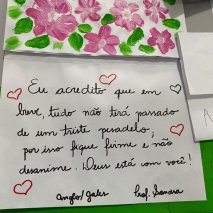 Eu acredito que em
breve, tudo não terá passado
de um triste pesadelo,
por isso fique firme e não
desanime. Deus está com você!
Anglo/Gales Prof. Sandra
A